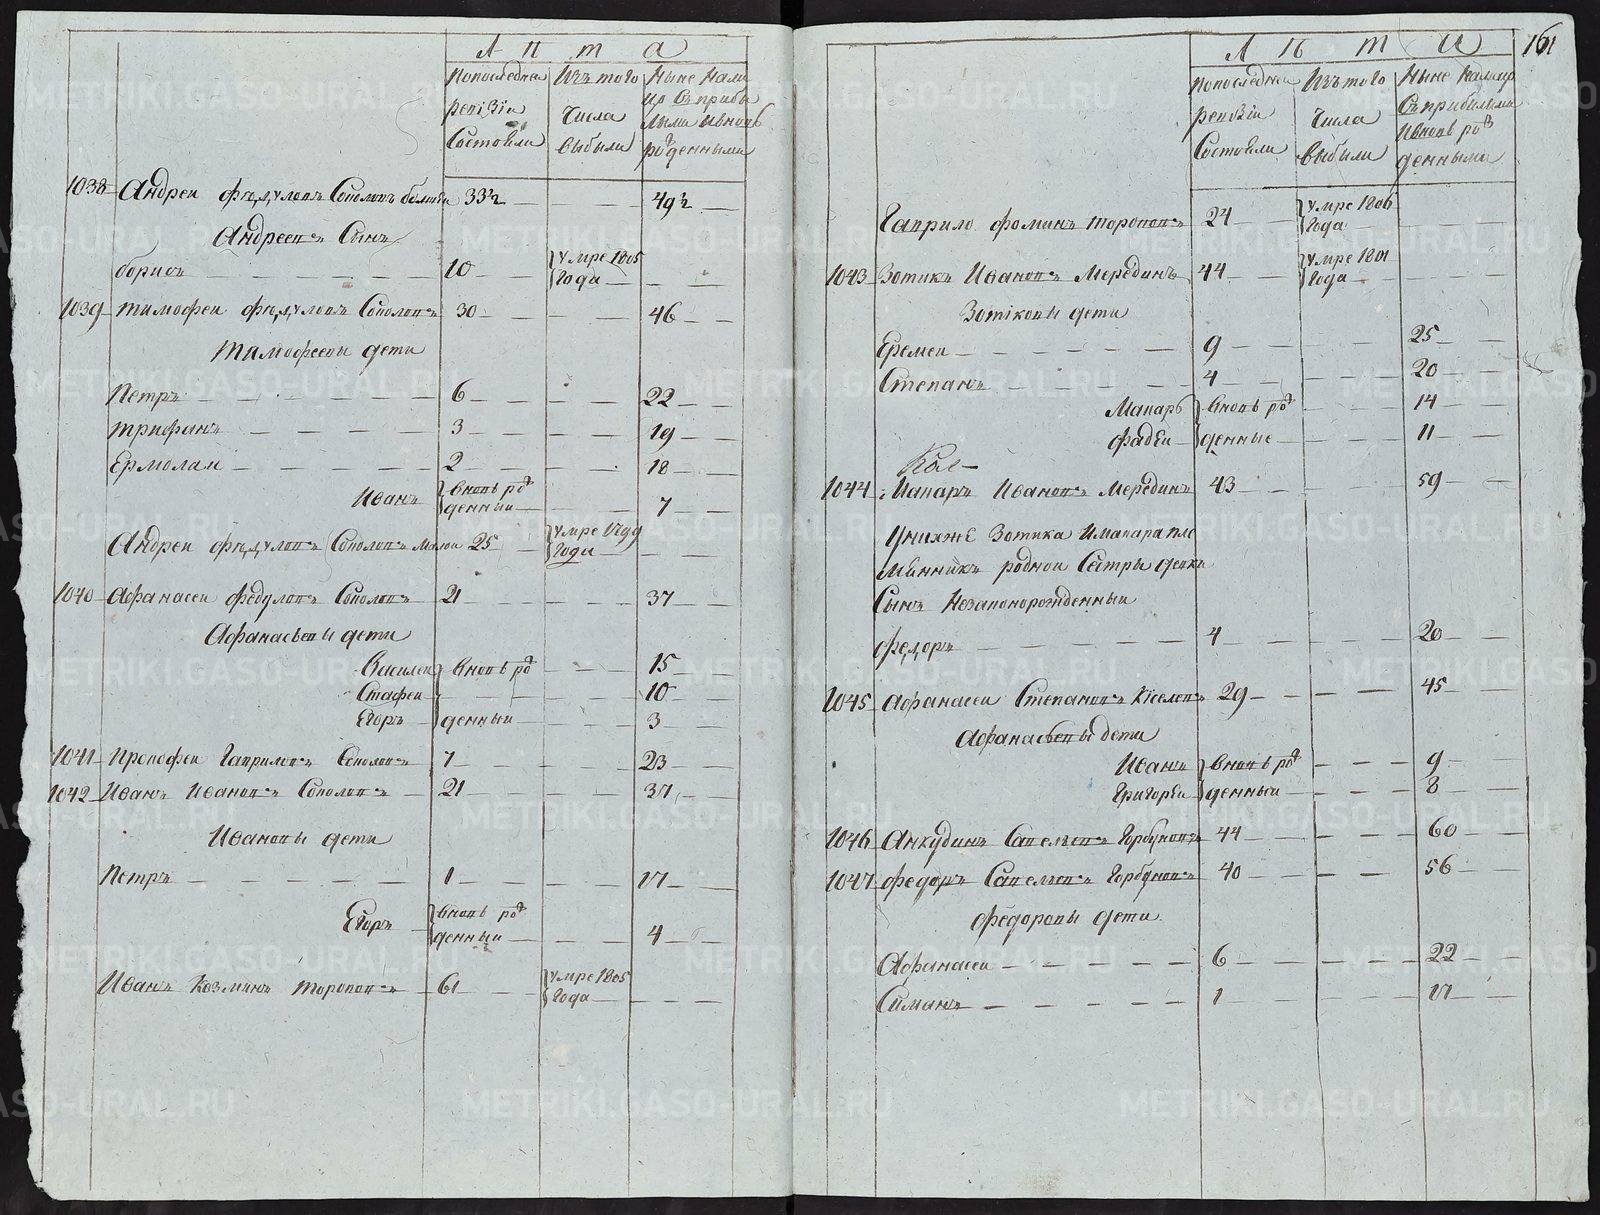 Лѣта
Попоследнеи ревизіи состояли
Изъ того числа выбыли
Ныне нали
цо съ прибы
лыми ивновь
рожденными
1038 Андреи Федуловъ Соколовъ болшеи 33½ 49½
Андреевъ сынъ
борисъ 10 умре 1805 года
1039 тимофеи Федуловъ Соколовъ 30 46
Тимофеевы дети
Петръ 6 22
трифанъ 3 19
Ермолаи 2 18
Иванъ вновь рожденныи 7
Андреи Федуловъ Соколовъ малои 25 умре 1799 года
1040 Афанасеи Федуловъ Соколовъ 21 37
Афанасьевы дети
Василеи вновь рож 15
Стафеи 10
Егоръ денныи 3
1041 Прокофеи Гавриловъ Соколовъ 7 23
1042 Иванъ Ивановъ Соколовъ 21 37
Ивановы дети
Петръ 1 17
Егоръ вновь рожденныи 4
Иванъ Козминъ Тороповъ 61 умре 1805 года
161
Лѣта
Попоследнеи ревизіи состояли
Изъ того числа выбыли
Ныне налицо
съ прибылыми
ивновь рож
денными
Гаврило Фоминъ Тороповъ 24 умре 1806 года
1043 Зотикъ Ивановъ Мередвинъ 44 умре 1801 года
Зотіковы дети
Еремеи 9 25
Степанъ 4 20
Макаръ вновь рож 14
Фадѣи денные 11
1044 Макаръ Ивановъ Мерединъ 43 59
Унихже Зотика Имакара пле
мянникъ роднои Сестры девки
Сынъ Незаконорожденныи
Федоръ 4 20
1045 Афанасеи Степановъ Киселевъ 29 45
Афанасьевы дети
Иванъ вновь рож 9
Григореи денныи 8
1046 Анкудинъ Савельевъ Горбуновъ 44 60
1047 Федоръ Савельевъ Горбуновъ 40 56
Федоровы дети
Афанасеи 6 22
Симанъ 1 17
METRIKI.GASO-URAL.RU